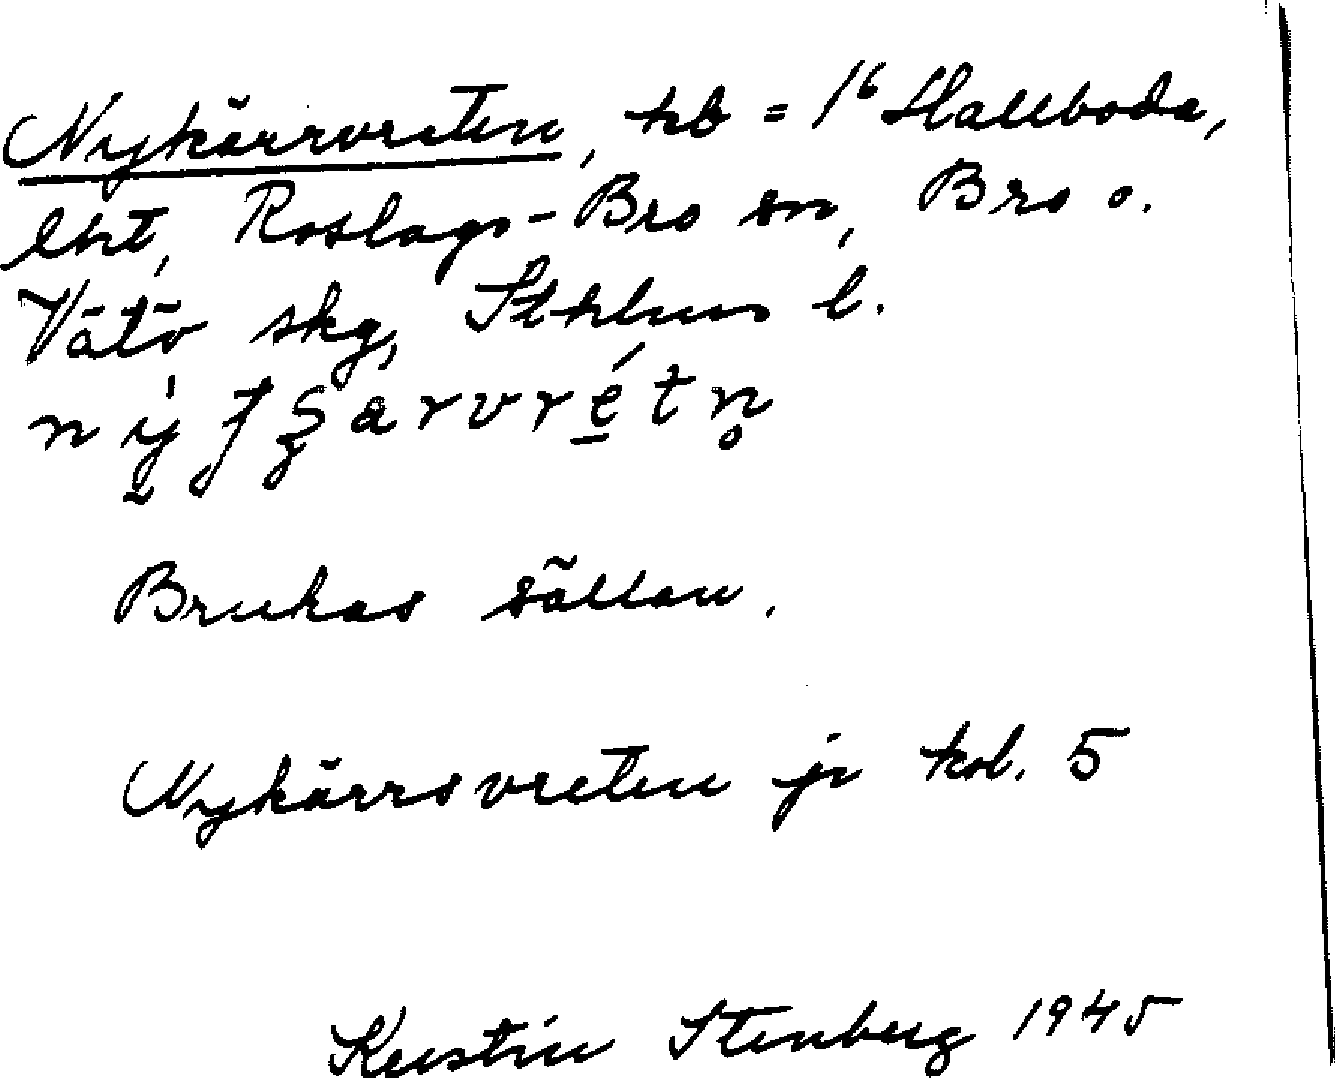 Nykärrvreten, tkb = 1⁶ Hallboda,
Eht, Roslags-Bro sn, Bro o.
Vätö skg, Sthlms l.
Brukas sällan.
Nykärrsvreten jr kol. 5
Kerstin Stenberg 1945